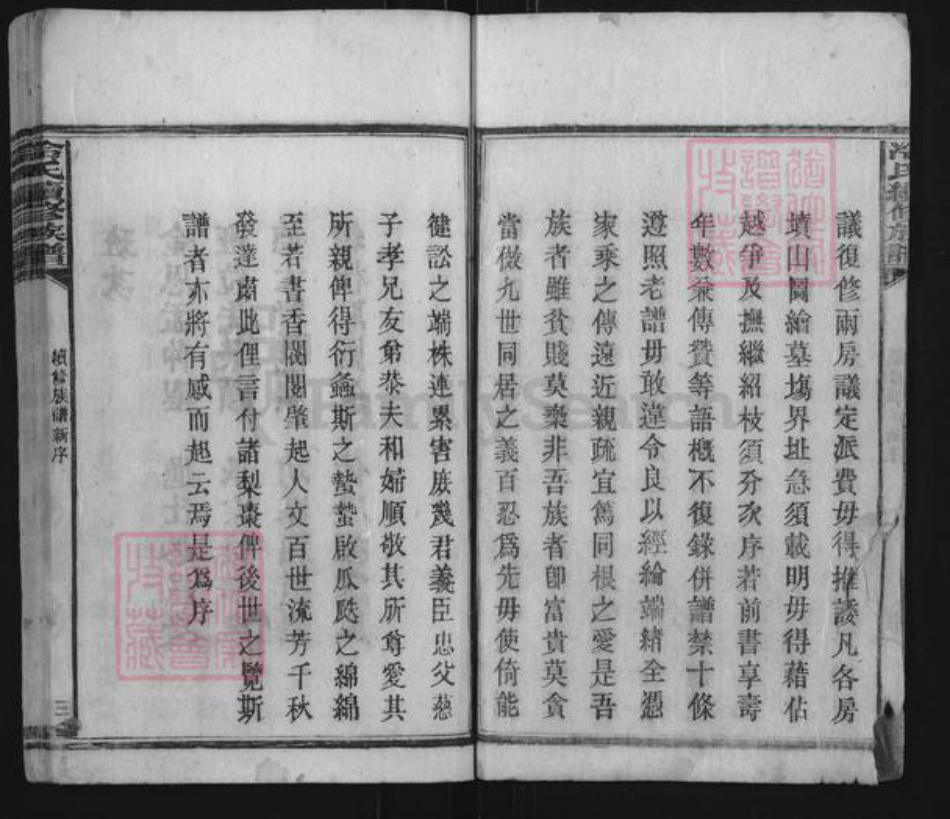 冷氏續修族譜
議復修兩房議定派費毋得推諉凡各房
墳山圖繪墓塲界址急須載明毋得藉佔
越爭及撫繼紹枝須分次序若前書享壽
年數兼傳贊等語槪不復錄併譜禁十條
遵照老譜毋敢違令良以經綸端緒全憑
家乘之傳遠近親疏宜篤同根之愛是吾
族者雖貧賤莫棄非吾族者卽富貴莫貪
當倣九世同居之義百忍爲先毋使倚能
健訟之端株連累害庻幾君義臣忠父慈
子孝兄友弟恭夫和婦順敬其所尊愛其
所親俾得衍螽斯之蟄蟄啟瓜瓞之綿綿
至若書香閥閱肇起人文百世流芳千秋
發達肅此俚言付諸梨棗俾後世之覽斯
譜者亦將有感而起云焉是爲序
冷氏續修族譜
續修族譜新序
三
FamilySearch